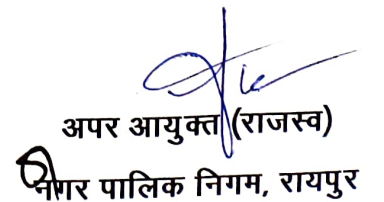 अपर आयुक्त (राजस्व)
नगर पालिक निगम, रायपुर